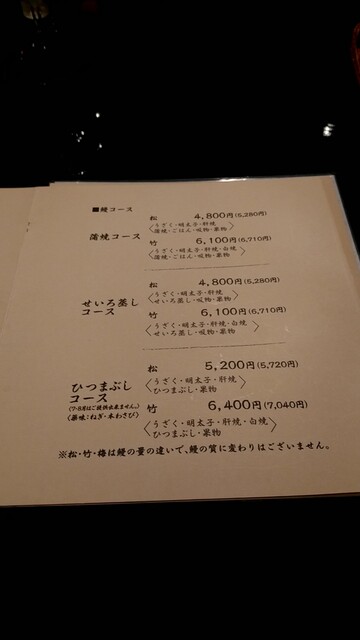 ■鰻コース
松 4,800円(5,280円)
蒲焼コース
〈うざく・明太子・肝焼
蒲焼・ごはん・吸物・果物〉
竹 6,100円(6,710円)
〈うざく・明太子・肝焼・白焼
蒲焼・ごはん・吸物・果物〉
松 4,800円(5,280円)
せいろ蒸し
コース
〈うざく・明太子・肝焼
せいろ蒸し・吸物・果物〉
竹 6,100円(6,710円)
〈うざく・明太子・肝焼・白焼
せいろ蒸し・吸物・果物〉
松 5,200円(5,720円)
ひつまぶし
コース
(7・8月はご提供出来ません。)
〈薬味:ねぎ・本わさび〉
〈うざく・明太子・肝焼
ひつまぶし・果物〉
竹 6,400円(7,040円)
〈うざく・明太子・肝焼・白焼
ひつまぶし・果物〉
※松・竹・梅は鰻の量の違いで、鰻の質に変わりはございません。